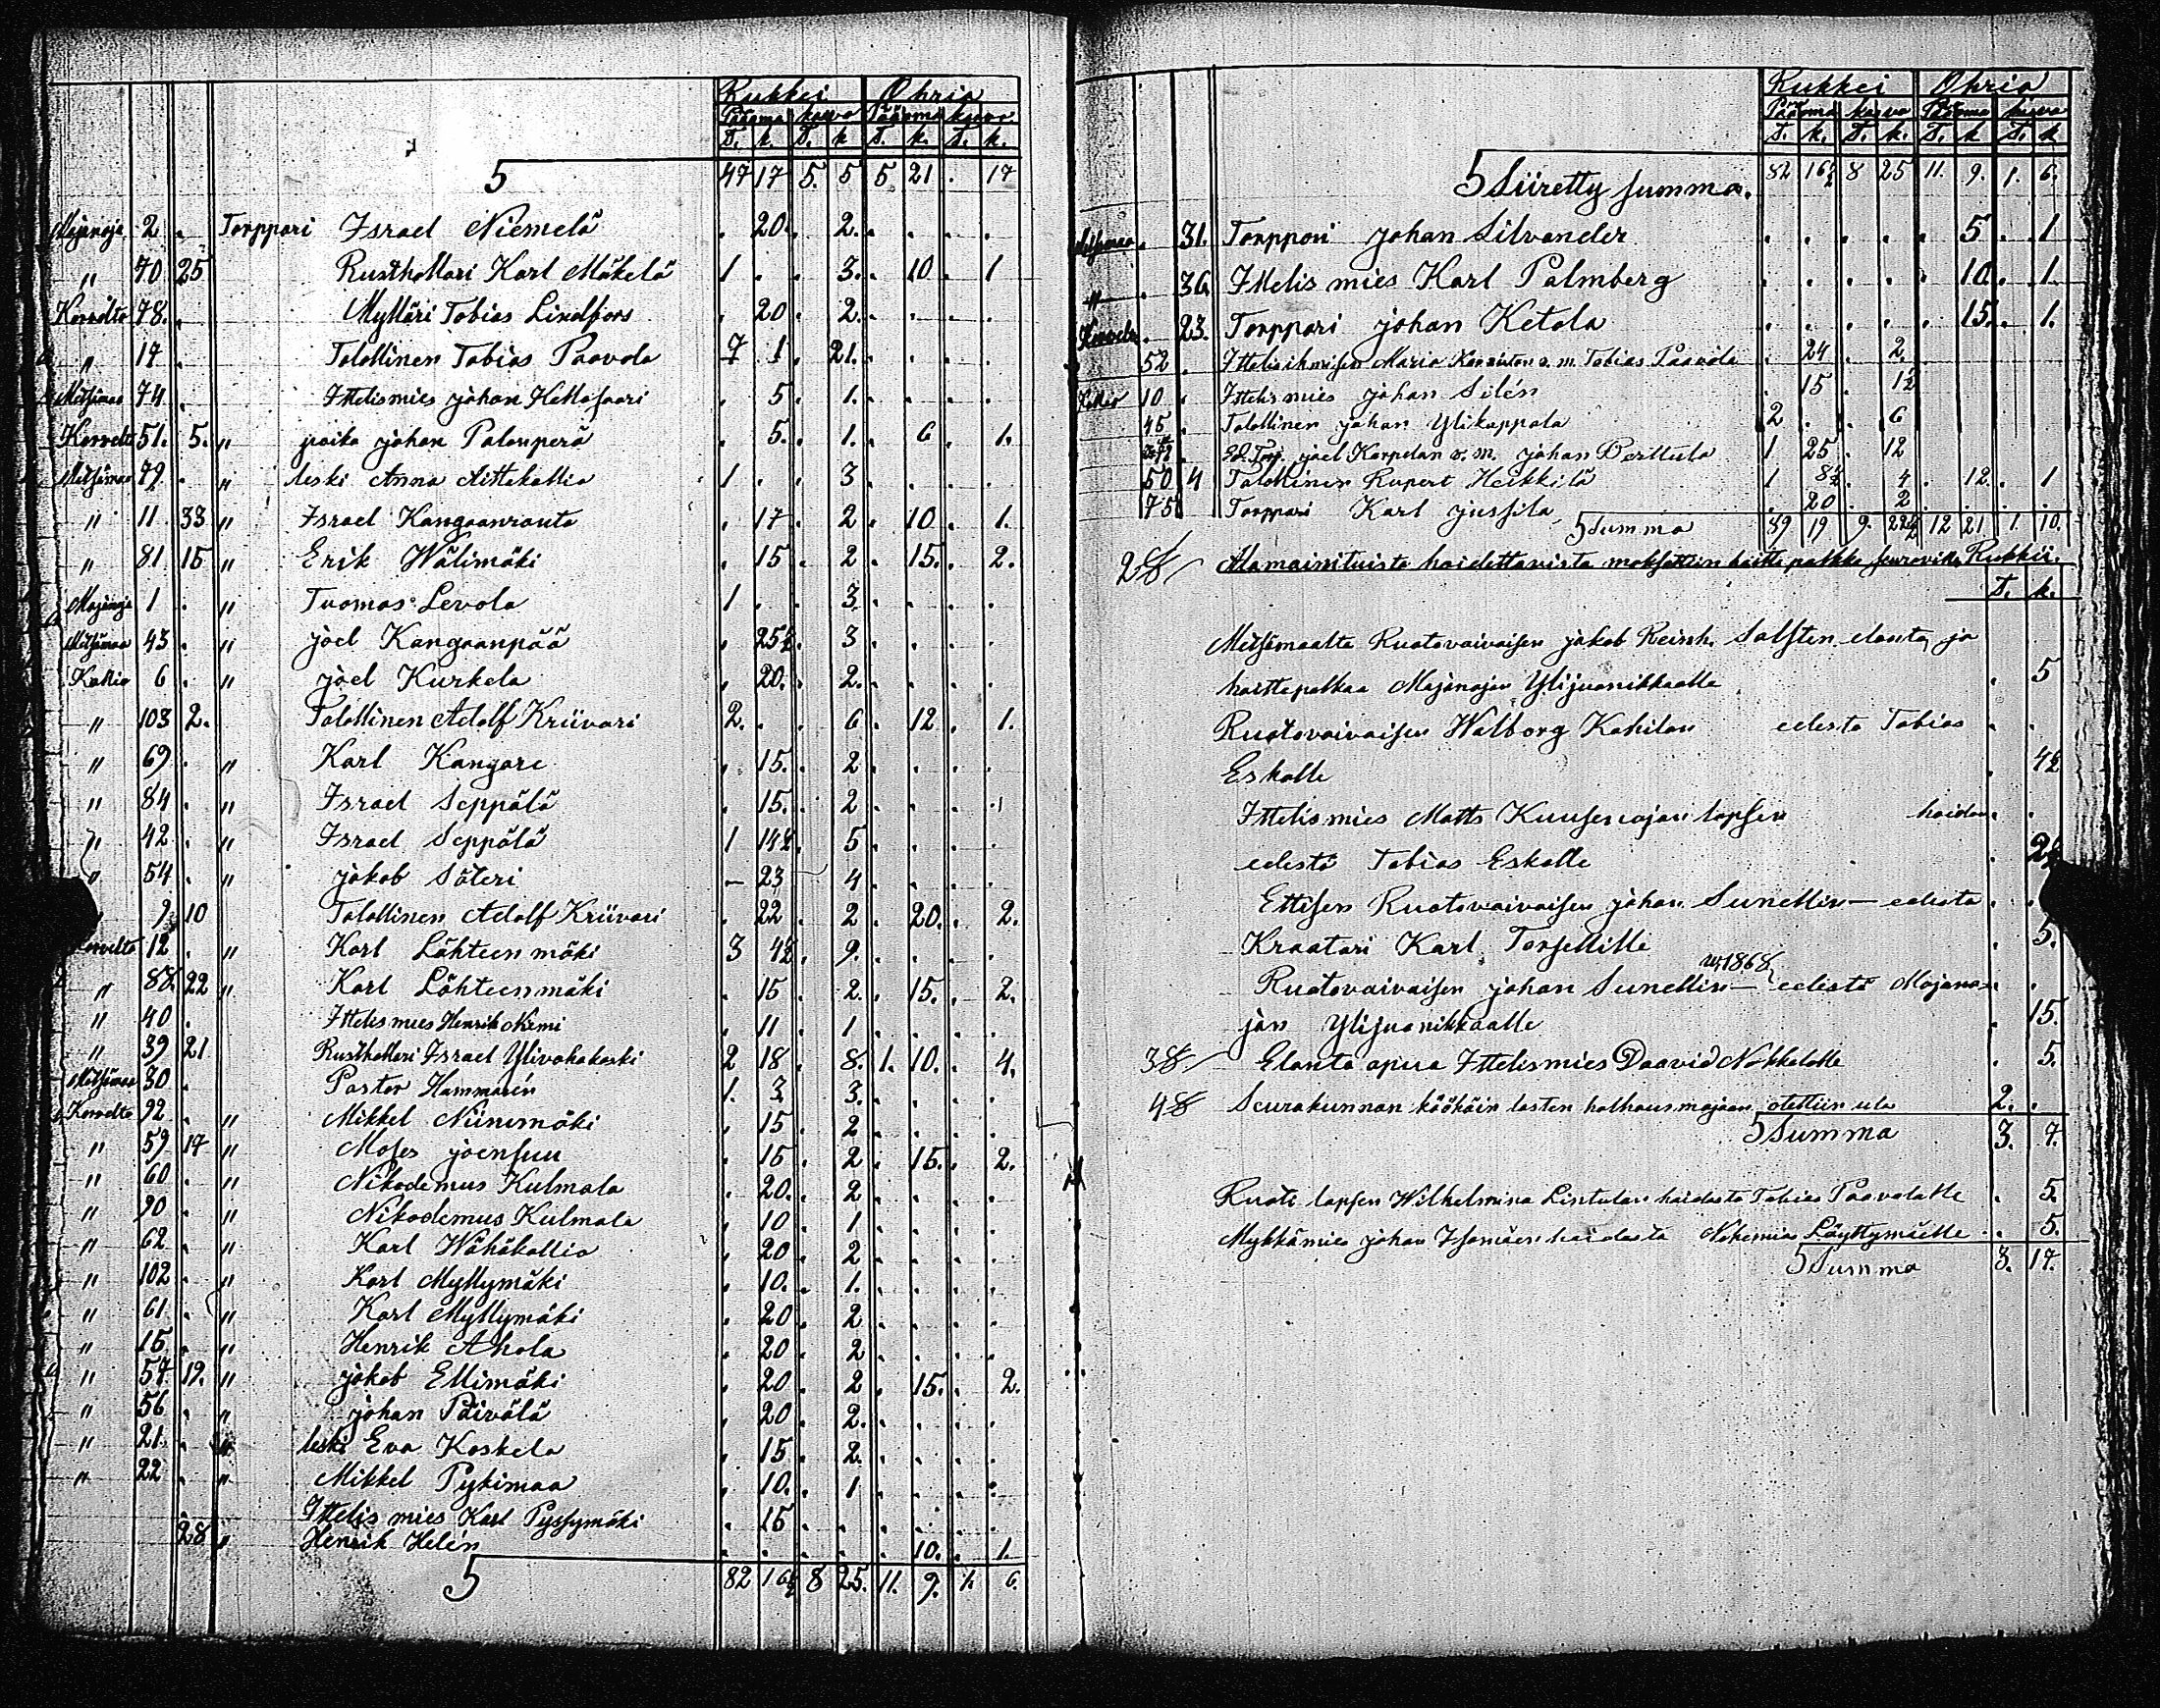 Rukkei Ohria
Pääoma kasvo Pääoma kasvo
T. k. T. k T. k. T. k.
5 47 17 5. 5 5 21 . 17
Majanoja 2 . Torppari Israel Niemelä . 20. . 2. . . . .
" 70 25 Rusthollari Karl Mäkelä 1 . . 3. . 10 . 1
78. . Mylläri Tobias Lindfors . 20 . 2. . . . .
" 17 . Talollinen Tobias Paavola 7 1 . 21. . . . .
Metsämaa 74 . Ittelismies johan Hellasaari . 5 . 1. . . . .
51. 5. " poika johan Palonperä . 5. . 1. . 6 . 1.
Metsämaa 79. . " leski Anna Aittakallio 1 . . 3 . . . .
" 11 33 " Israel Kangaanrauta . 17 . 2 . 10 . 1.
" 81 15 " Erik Wälimäki . 15 . 2 . 15. . 2.
Majanoja 1 . " Tuomas Levola 1 . . 3 . . . .
Metsämaa 43 . " joel Kangaanpää . 25½ . 3 . . . .
Kallio 6 . " joel Kurkela . 20. . 2. . . . .
" 103 2. Talollinen Adolf Kriivari 2. . . 6 . 12 . 1.
" 69 . " Karl Kangare . 15. . 2 . . . .
" 84 . " Israel Seppälä . 15. . 2 . . . .
" 42 . " Israel Seppälä 1 14½ . 5 . . . .
" 54 . " jakob Säteri – 23 4 . . . .
9 10 Talollinen Adolf Kriivari . 22 . 2 . 20. . 2.
12 . " Karl Lähteenmäki 3 4½ . 9. . . . .
" 88. 22 " Karl Lähteenmäki . 15 . 2. . 15. . 2.
" 40 . Ittelis mies Henrik Nemi . 11 . 1 . . . .
" 39 21 Rusthollari Israel Ylivakakoski 2 18 . 8. 1. 10. . 4.
Metsämaa 30 . Pastor Hammarén 1. 3 3. . . . .
92 . " Mikkel Niinimäki . 15 . 2 . . . .
" 59 17 " Moses joensuu . 15 . 2 . 15. . 2.
" 60 . " Nikodemus Kulmala . 20. . 2 . . . .
" 90 . " Nikodemus Kulmala . 10 . 1 . . . .
" 62 . " Karl Wähäkallio . 20 . 2 . . . .
" 102 . " Karl Myllymäki . 10. . 1. . . . .
" 61 . " Karl Myllymäki . 20 . 2 . . . .
" 15 . " Henrik Ahola . 20 . 2 . . . .
" 57 19. " jakob Ellimäki . 20 . 2 . 15. . 2.
" 56 . " johan Päivälä . 20 . 2. . . . .
" 21 . " leski Eva Koskela . 15 . 2. . . . .
" 22 . " Mikkel Pykimaa . 10. . 1 . . . .
Ittelis mies Karl Pyssymäki . 15 . . . . . .
28 " Henrik Helén . . . . . 10. . 1.
5 82 16½ 8 25. 11. 9. 1. 6.
Rukkei Ohria
Pääoma kasvo Pääoma kasvo
T. k. T. k. T. k T. k
5 Siiretty summa. 82 16½ 8 25 11. 9. 1. 6.
Metsämaa . 31. Torppari johan Silvander . . . . . 5 . 1
" . 36 Ittelis mies Karl Palmberg . . . . . 10. . 1.
. 23. Torppari johan Ketola . . . . . 15. . 1.
52 . Maria Tobias Paavola . 24 . 2.
Kallio 10 . Ittelis mies johan Silén . 15 . 1½
45 . Talollinen johan Ylikappala 2 . . 6
Ed. Torp. joel Karpelan johan Perttula 1 25 . 12
50 4 Talollinen Rupert Heikkilä 1 8½ . 4 . 12. . 1
75 Torppari Karl jussila . 20 . 2
5 Summa 89 19 9. 22½ 12 21 1. 10.
2§ Alamainituista hoidettavista maksettiin hoitto palkka seuraville Rukkii.
T. k.
Metsämaalta Ruotovaivaisen jakob Reinh. Salsten elanta ja
hoittopalkaa Majanojan Ylijuanikkaalle . 5
Ruotovaivaisen Walborg Kahilan edestä Tobias . .
Eskolle . 4½
Ittelis mies Matts Kuusenojan lapsen hoidon . .
edestä Tobias Eskolle . 2½
Ettisen Ruotovaivaisen johan Sunellin — edestä . .
Kraatari Karl Torsellille . 5.
v. 1868
Ruotovaivaisen johan Sunellin — edestä Majano- .
jan Ylijuanikkaalle . 15.
3§ Elanto apua Ittelismies Daavid Nokkalalle . 5.
4§ Seurakunnan köökäin lasten holhous majaan otettiin ula 2. .
5 Summa 3. 7.
Ruoti lapsen Wilhelmina Lintulan hoidosta Tobias Paavolalle . 5.
Mykkämies johan hoidosta Nehemias Läyttymäelle . 5.
5 Summa 3. 17.